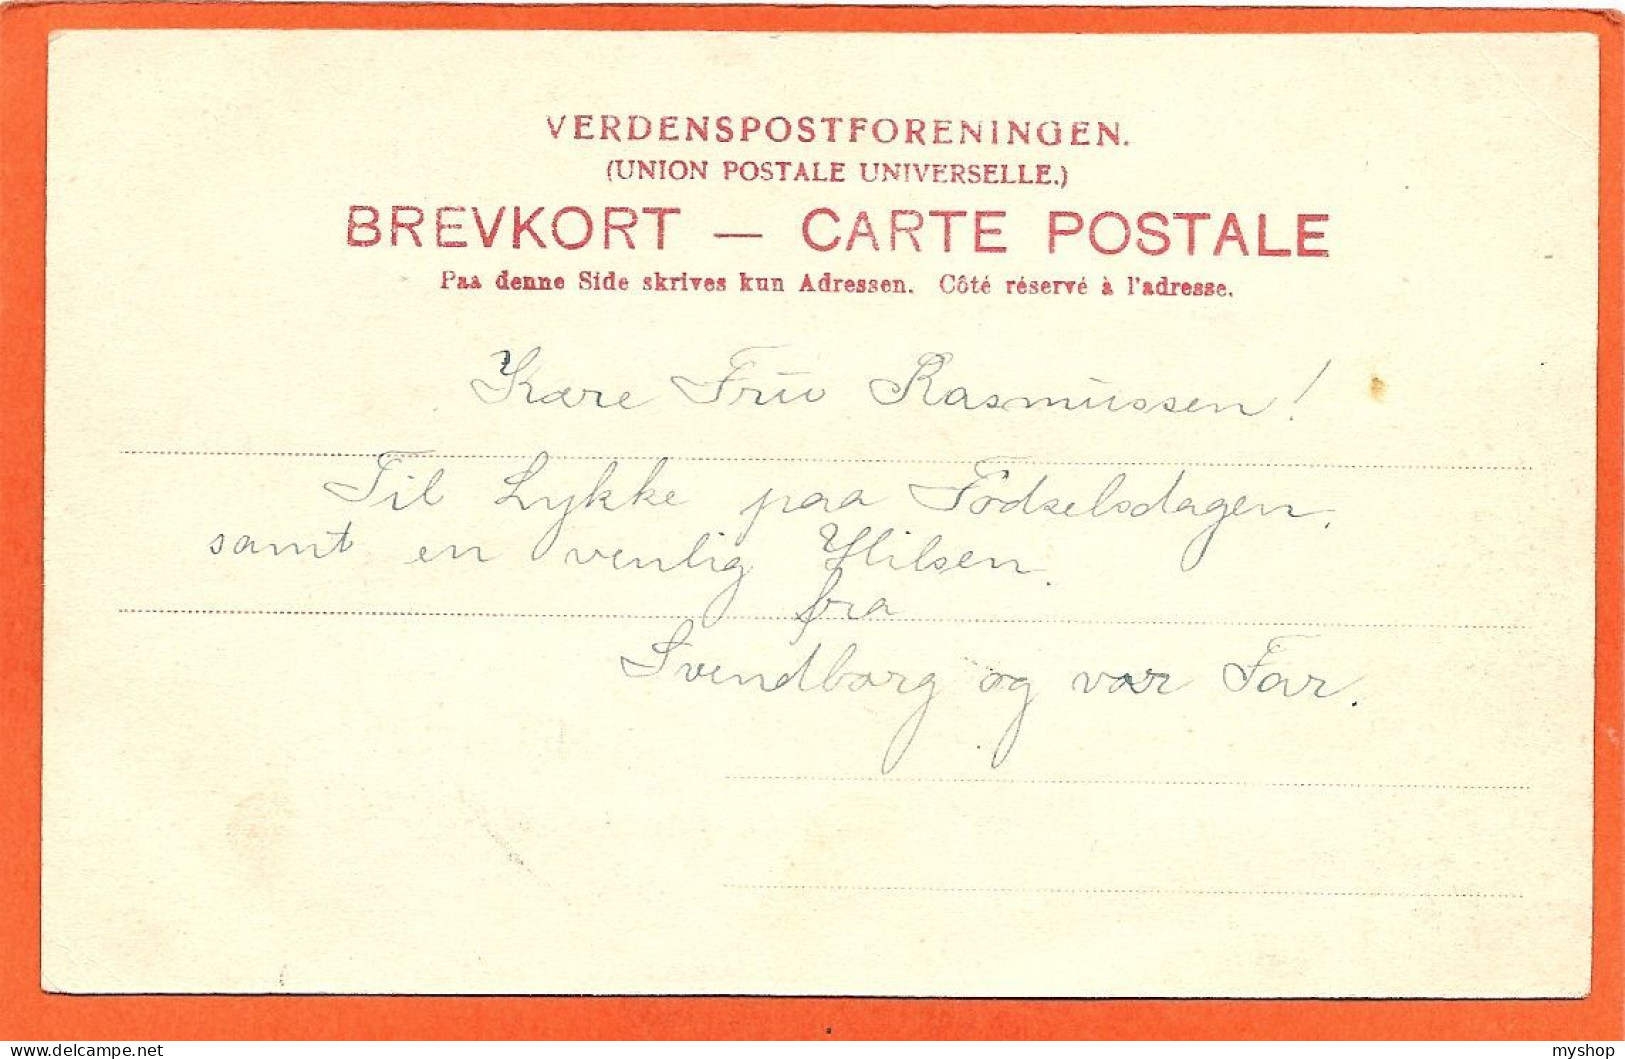 VERDENSPOSTFORENINGEN.
(UNION POSTALE UNIVERSELLE.)
BREVKORT — CARTE POSTALE
Paa denne Side skrives kun Adressen. Côté réservé à l'adresse.
Kære Frue Rasmussen!
Til Lykke paa Fødselsdagen.
samt en venlig Hilsen.
fra
Svendborg og vor Far.
delcampe.net
myshop